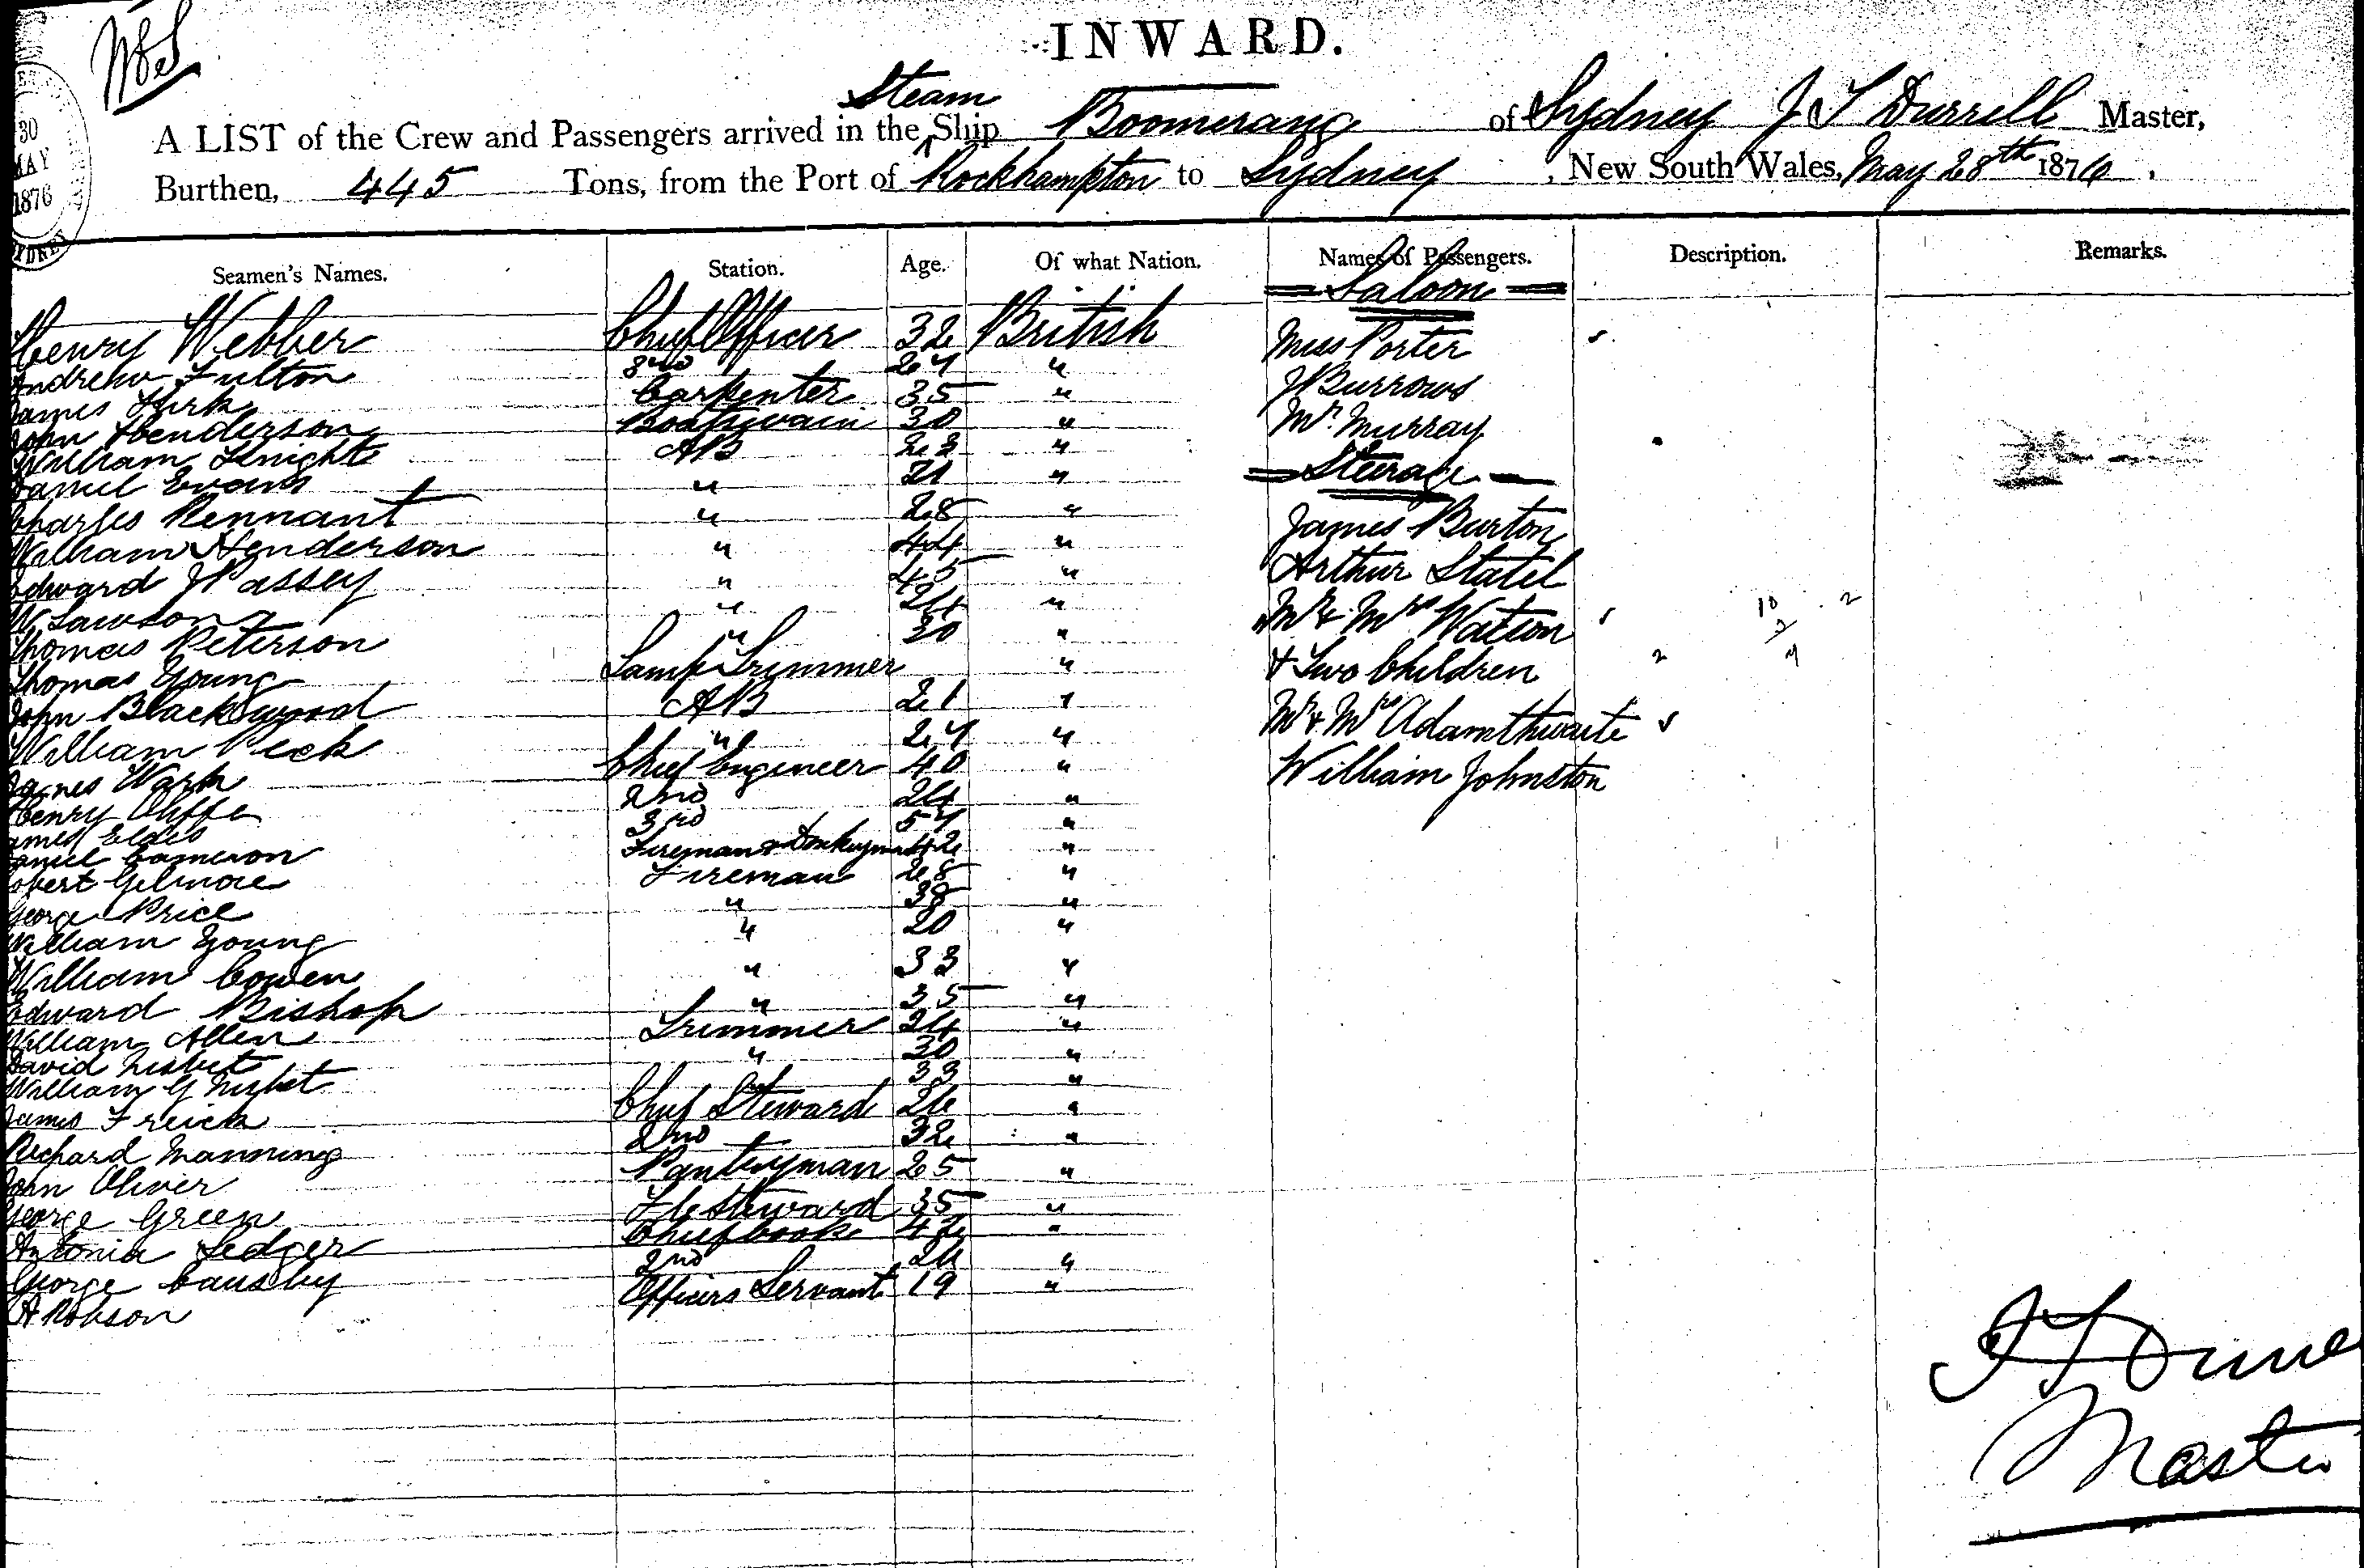 INWARD.
Steam
A LIST of the Crew and Passengers arrived in the Ship Boomerang of Sydney J T Durrell Master,
Burthen, 445 Tons, from the Port of Rockhampton to Sydney, New South Wales, May 28th 1876.
30
MAY
1876
Seamen's Names. Station. Age. Of what Nation. Names of Passengers. Description. Remarks.
Saloon
Henry Webber Chief Officer 32 British Miss Porter
Andrew Fulton 2nd 27 " J Burrows
James Kirk Carpenter 35 " Mr. Murray
John Henderson Boatswain 30 "
William Knight AB 23 " Steerage
Daniel Evans " 21 "
Charles Pennant " 28 " James Burton
William Henderson " 44 " Arthur
Edward J Passey " 45 " Mr & Mrs Watson
W Lawson " 24 " & Two Children
Thomas Peterson " 30 " Mr & Mrs Adamthwaite
Thomas Young Lamp Trimmer " William Johnston
John Blackwood AB 21 "
William Peck " 27 "
James Wark Chief Engineer 40 "
Henry 2nd 24 "
James 3rd 57 "
Daniel Cameron Fireman & Donkeyman 42 "
Robert Gilmore Fireman 28 "
George Price " 38 "
William Young " 20 "
William Cowen " 33 "
Edward Bishop " 35 "
William Allen Trimmer 24 "
David Nisbet " 30 "
William G Nisbet " 33 "
James Chief Steward 26 "
Richard Manning 2nd 32 "
John Oliver Pantryman 25 "
George Green Steward 35 "
Antonia Ledger Chief Cook 42 "
George Causby 2nd "
A Robson Officers Servant 19 "
Master